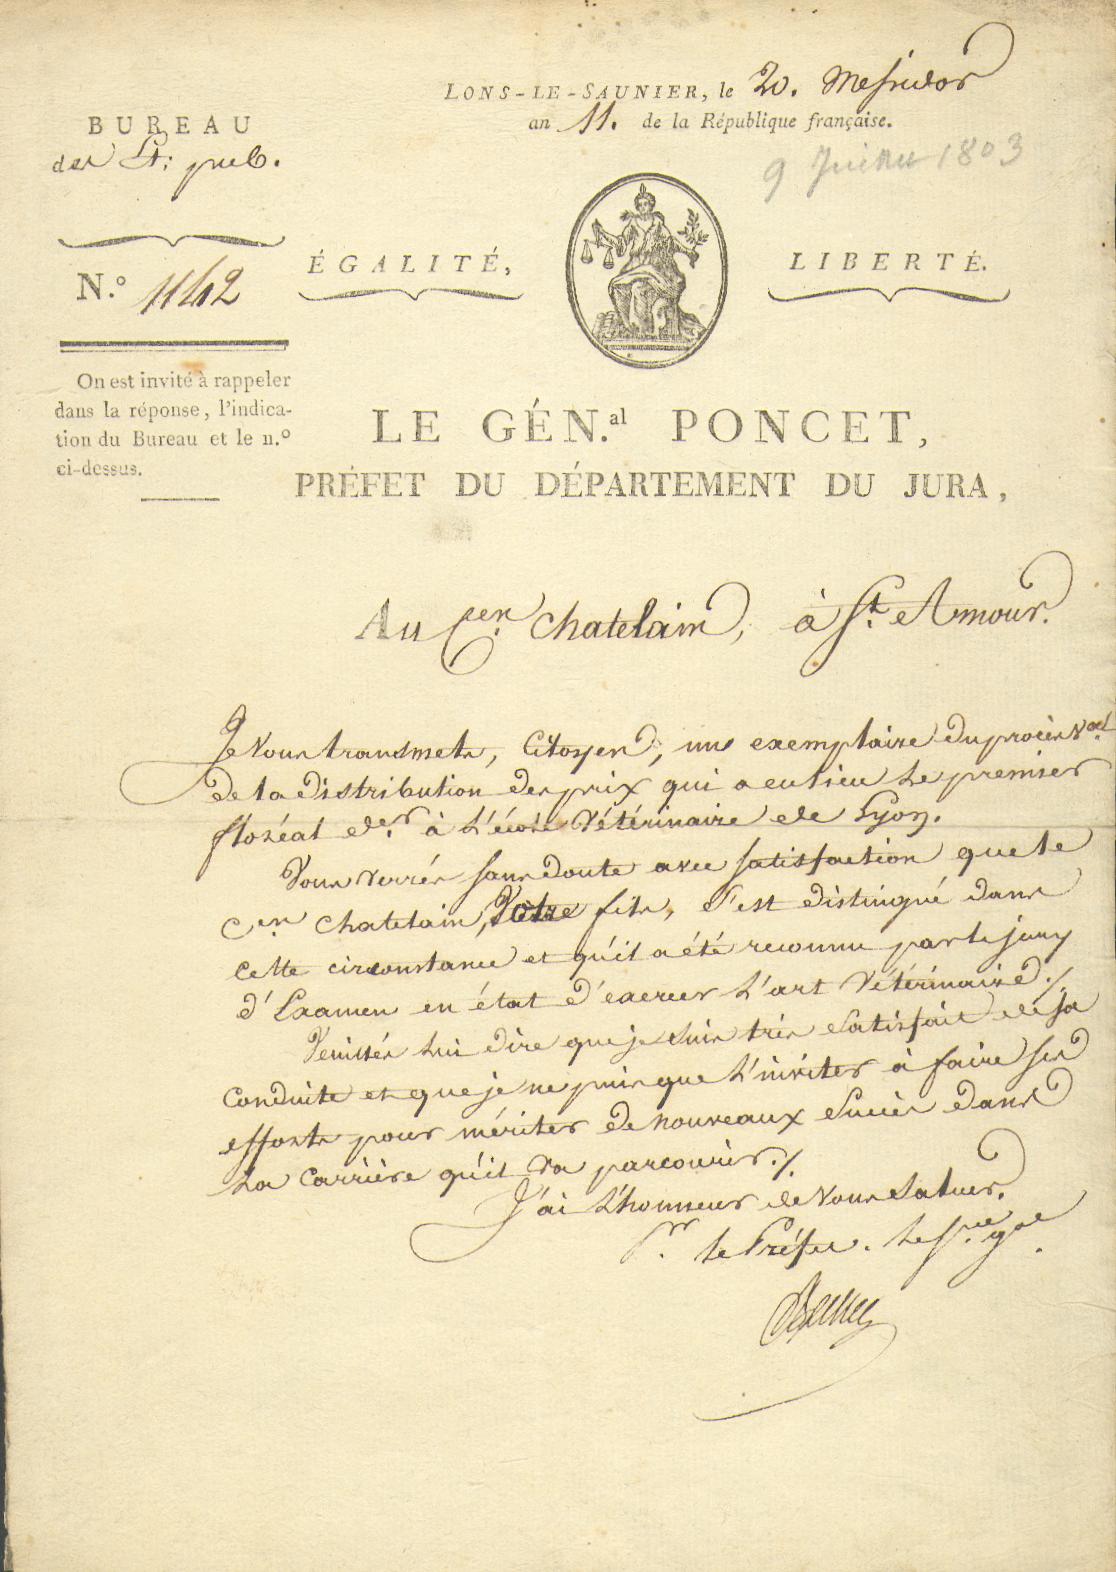 LONS-LE-SAUNIER, le 20. Messidor
an 11. de la République française.
9 Juillet 1803
BUREAU
des Et: pub.
N.º 1142
ÉGALITÉ,
LIBERTÉ.
On est invité à rappeler
dans la réponse, l'indica-
tion du Bureau et le n.º
ci-dessus.
LE GÉN.al PONCET,
PRÉFET DU DÉPARTEMENT DU JURA,
Au Cen. Chatelain, à St. Amour.
Je vous transmets, Citoyen, un exemplaire du procès v.al
de la distribution des prix qui a eu lieu le premier
floréal der. à l'école vétérinaire de Lyon.
Vous verrés sans doute avec satisfaction que le
Cen Chatelain, Votre fils, s'est distingué dans
cette circonstance et qu'il a été reconnu par le jury
d'Examen en état d'exercer l'art vétérinaire./
Veuillés lui dire que je suis très satisfait de sa
conduite et que je ne puis que l'inviter à faire ses
efforts pour mériter de nouveaux succès dans
la carrière qu'il va parcourir./.
J'ai l'honneur de vous saluer.
Pr. le Préfet. le S.re g.al